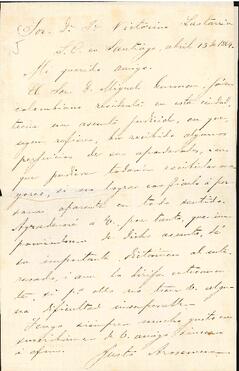 Sor. Dr. Dn. Victorino Lastarria
S. C. en Santiago, abril 13 de 1884.
Mi querido amigo:
El Sor. D. Miguel Guzman, jóven
colombiano residente en esta ciudad,
tiene un asunto judicial, en que
segun refiere, ha recibido algunos
perjuicios de su apoderado, i en
que pudiera todavia recibirlos ma
yores, si no logra confiarlo á per
sona aparente en todo sentido.
Agradeceré a V. por tanto, que im
poniendose de dicho asunto, dé
su importante dictámen al inte
resado, i aun lo dirija
si pa. ello no tiene V. algu
na dificultad insuperable.
Tengo siempre mucho gusto en
suscribirme de V. amigo sincero
i afmo.
Justo Arosemena